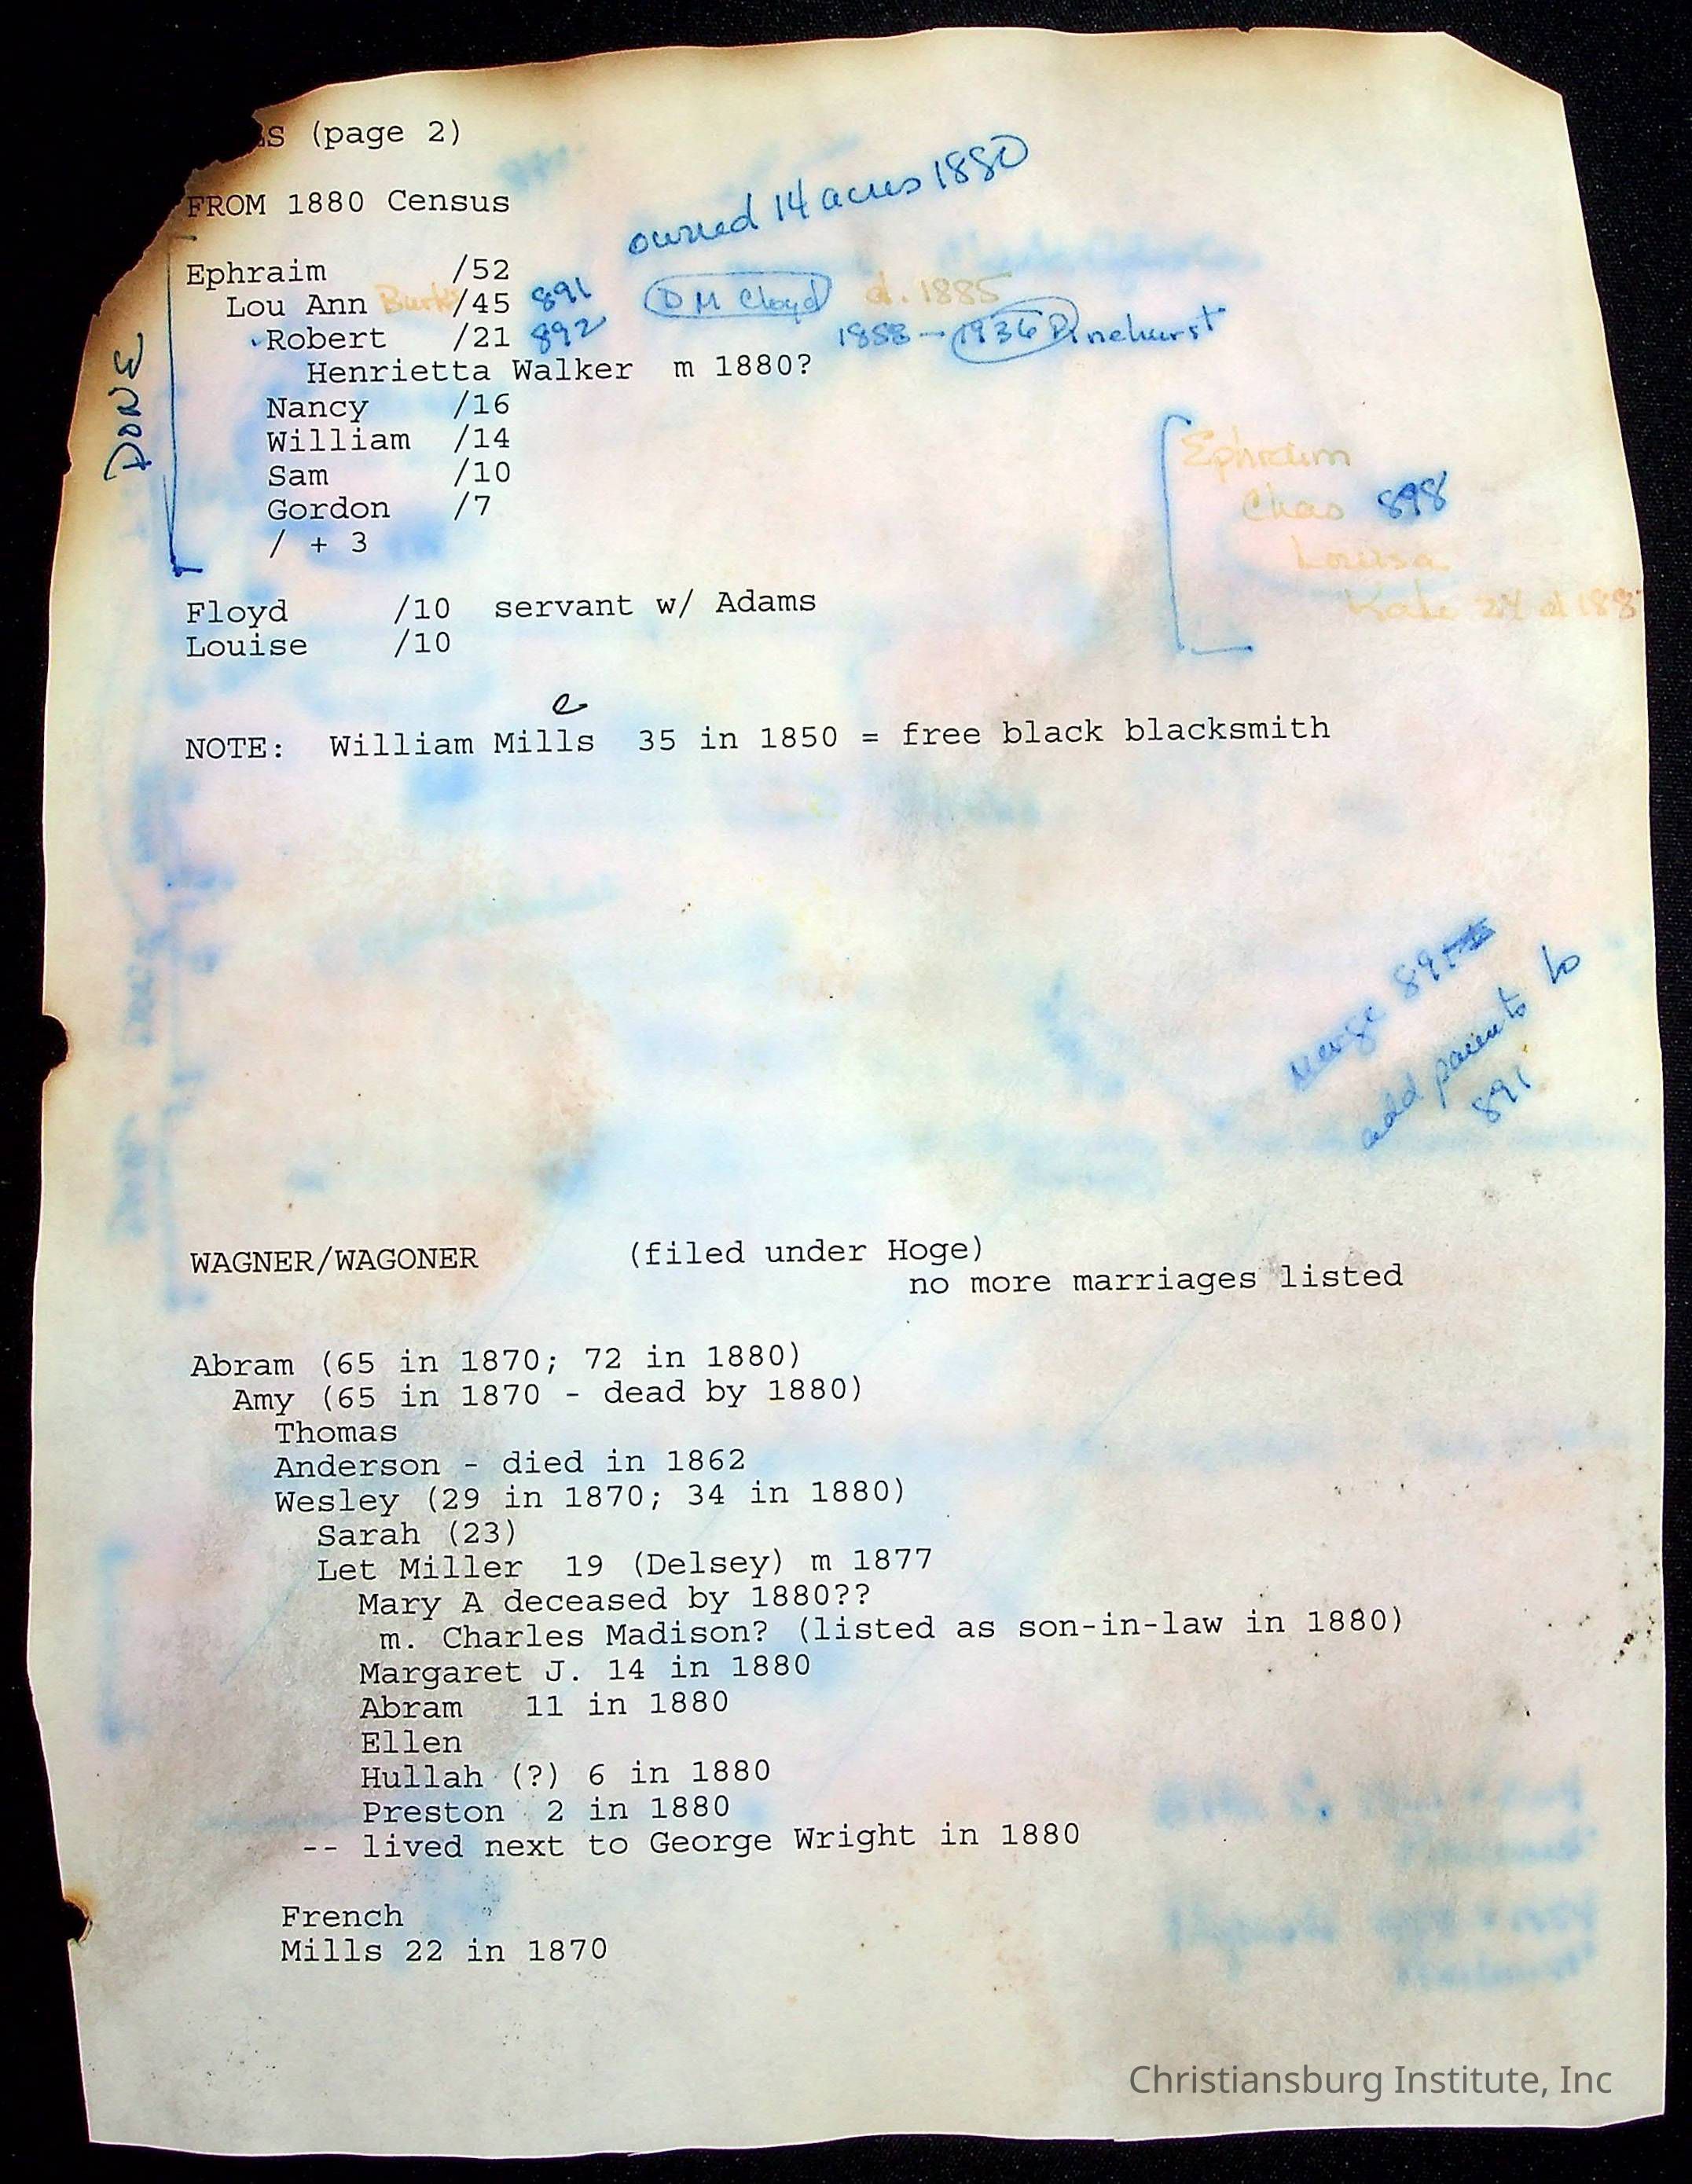 (page 2)
FROM 1880 Census
owned 14 acres 1880
DONE
Ephraim /52
Lou Ann Burks /45 891 D M Cloyd d. 1885
Robert /21 892 1858 - 1936 Pinehurst
Henrietta Walker m 1880?
Nancy /16
William /14
Sam /10
Gordon /7
/ + 3
Ephraim
Chas 898
Louisa
Kate 24 d 188
Floyd /10 servant w/ Adams
Louise /10
e
NOTE: William Mills 35 in 1850 = free black blacksmith
Merge
add parents to
891
WAGNER/WAGONER (filed under Hoge)
no more marriages listed
Abram (65 in 1870; 72 in 1880)
Amy (65 in 1870 - dead by 1880)
Thomas
Anderson - died in 1862
Wesley (29 in 1870; 34 in 1880)
Sarah (23)
Let Miller 19 (Delsey) m 1877
Mary A deceased by 1880??
m. Charles Madison? (listed as son-in-law in 1880)
Margaret J. 14 in 1880
Abram 11 in 1880
Ellen
Hullah (?) 6 in 1880
Preston 2 in 1880
-- lived next to George Wright in 1880
French
Mills 22 in 1870
Christiansburg Institute, Inc